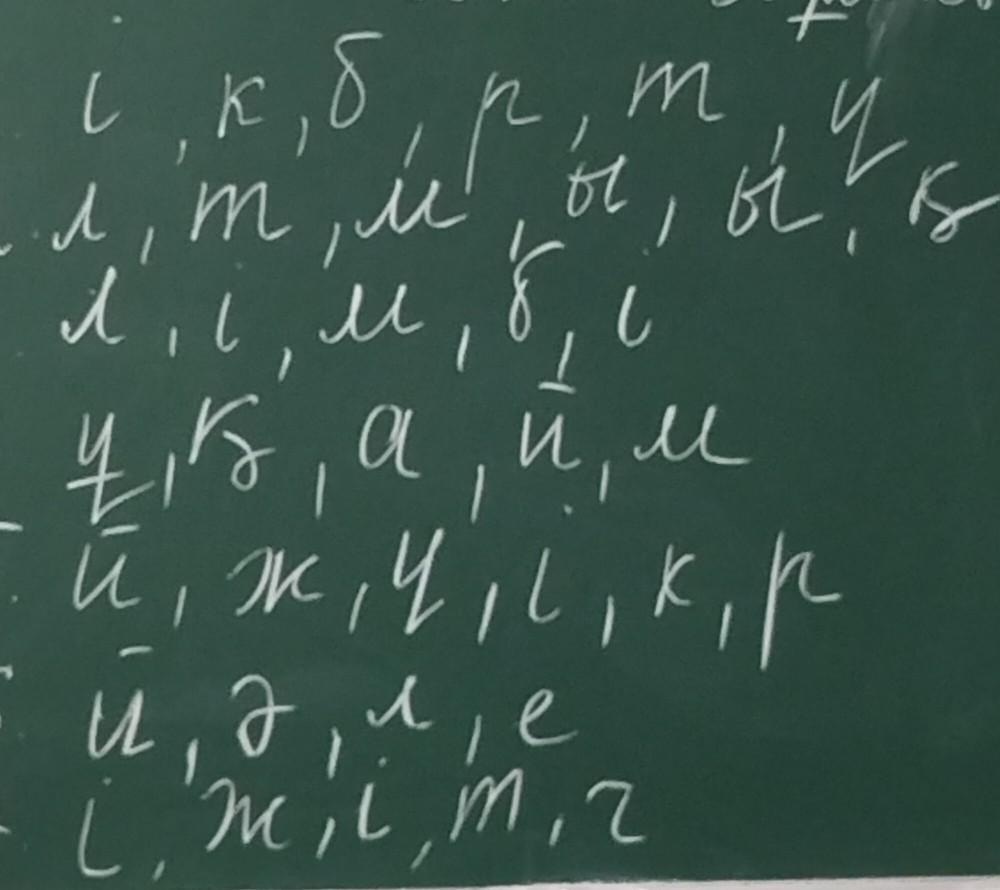 і, к, б, р, т, ұ
л, т, м, ы, ы, қ
л, і, м, б, і
ұ, қ, а, й, м
й, ж, ү, і, к, р
й, ә, л, е
і, ж, і, т, г